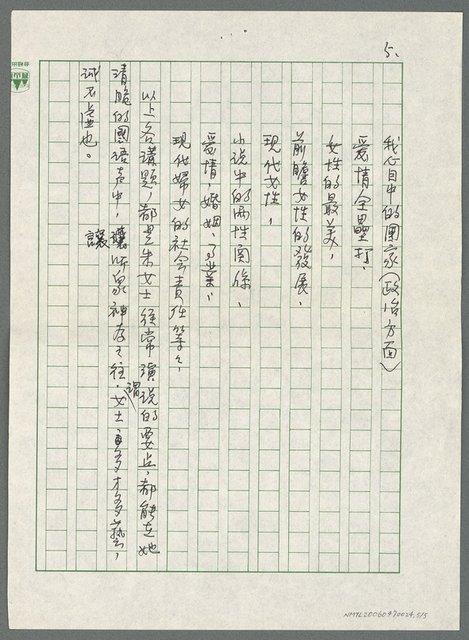 5.
我心目中的國家(政治方面)
愛情全壘打,
女性的最美,
前瞻女性的發展,
現代女性,
小說中的兩性関係,
愛情,婚姻,事業,
現代婦女的社会責任等々,
以上各講題,都是朱女士經常演說的要点,都能在她
清脆的國語声中,讓听眾神存之往,謂女士更多才多藝,
誠不虛也。
NMTL20060470024,5/5